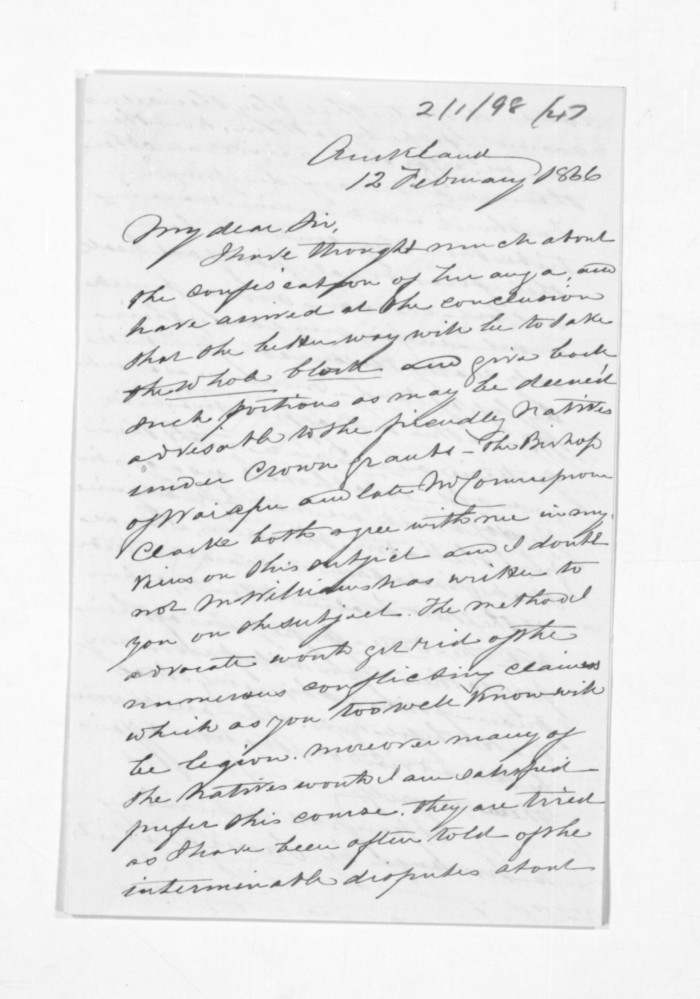 2/1/98/47
Auckland
12 February 1866
My dear Sir,
I have thought much about
the confiscation of Turanga, and
have arrived at the conclusion
that the better way will be to take
the whole block and give back
such portions as may be deemed
advisable to the friendly Natives
under Crown grants - The Bishop
of Waiapu and late Mr Commr
Clarke both agree with me in my
views on this subject and I doubt
not Mr Williams has written to
you on the subject. The method I
advocate would get rid of the
numerous conflicting claims
which as you too well know will
be legion. moreover many of
the Natives would I am satisfied
prefer this course. They are tired
as I have been often told of the
interminable disputes about